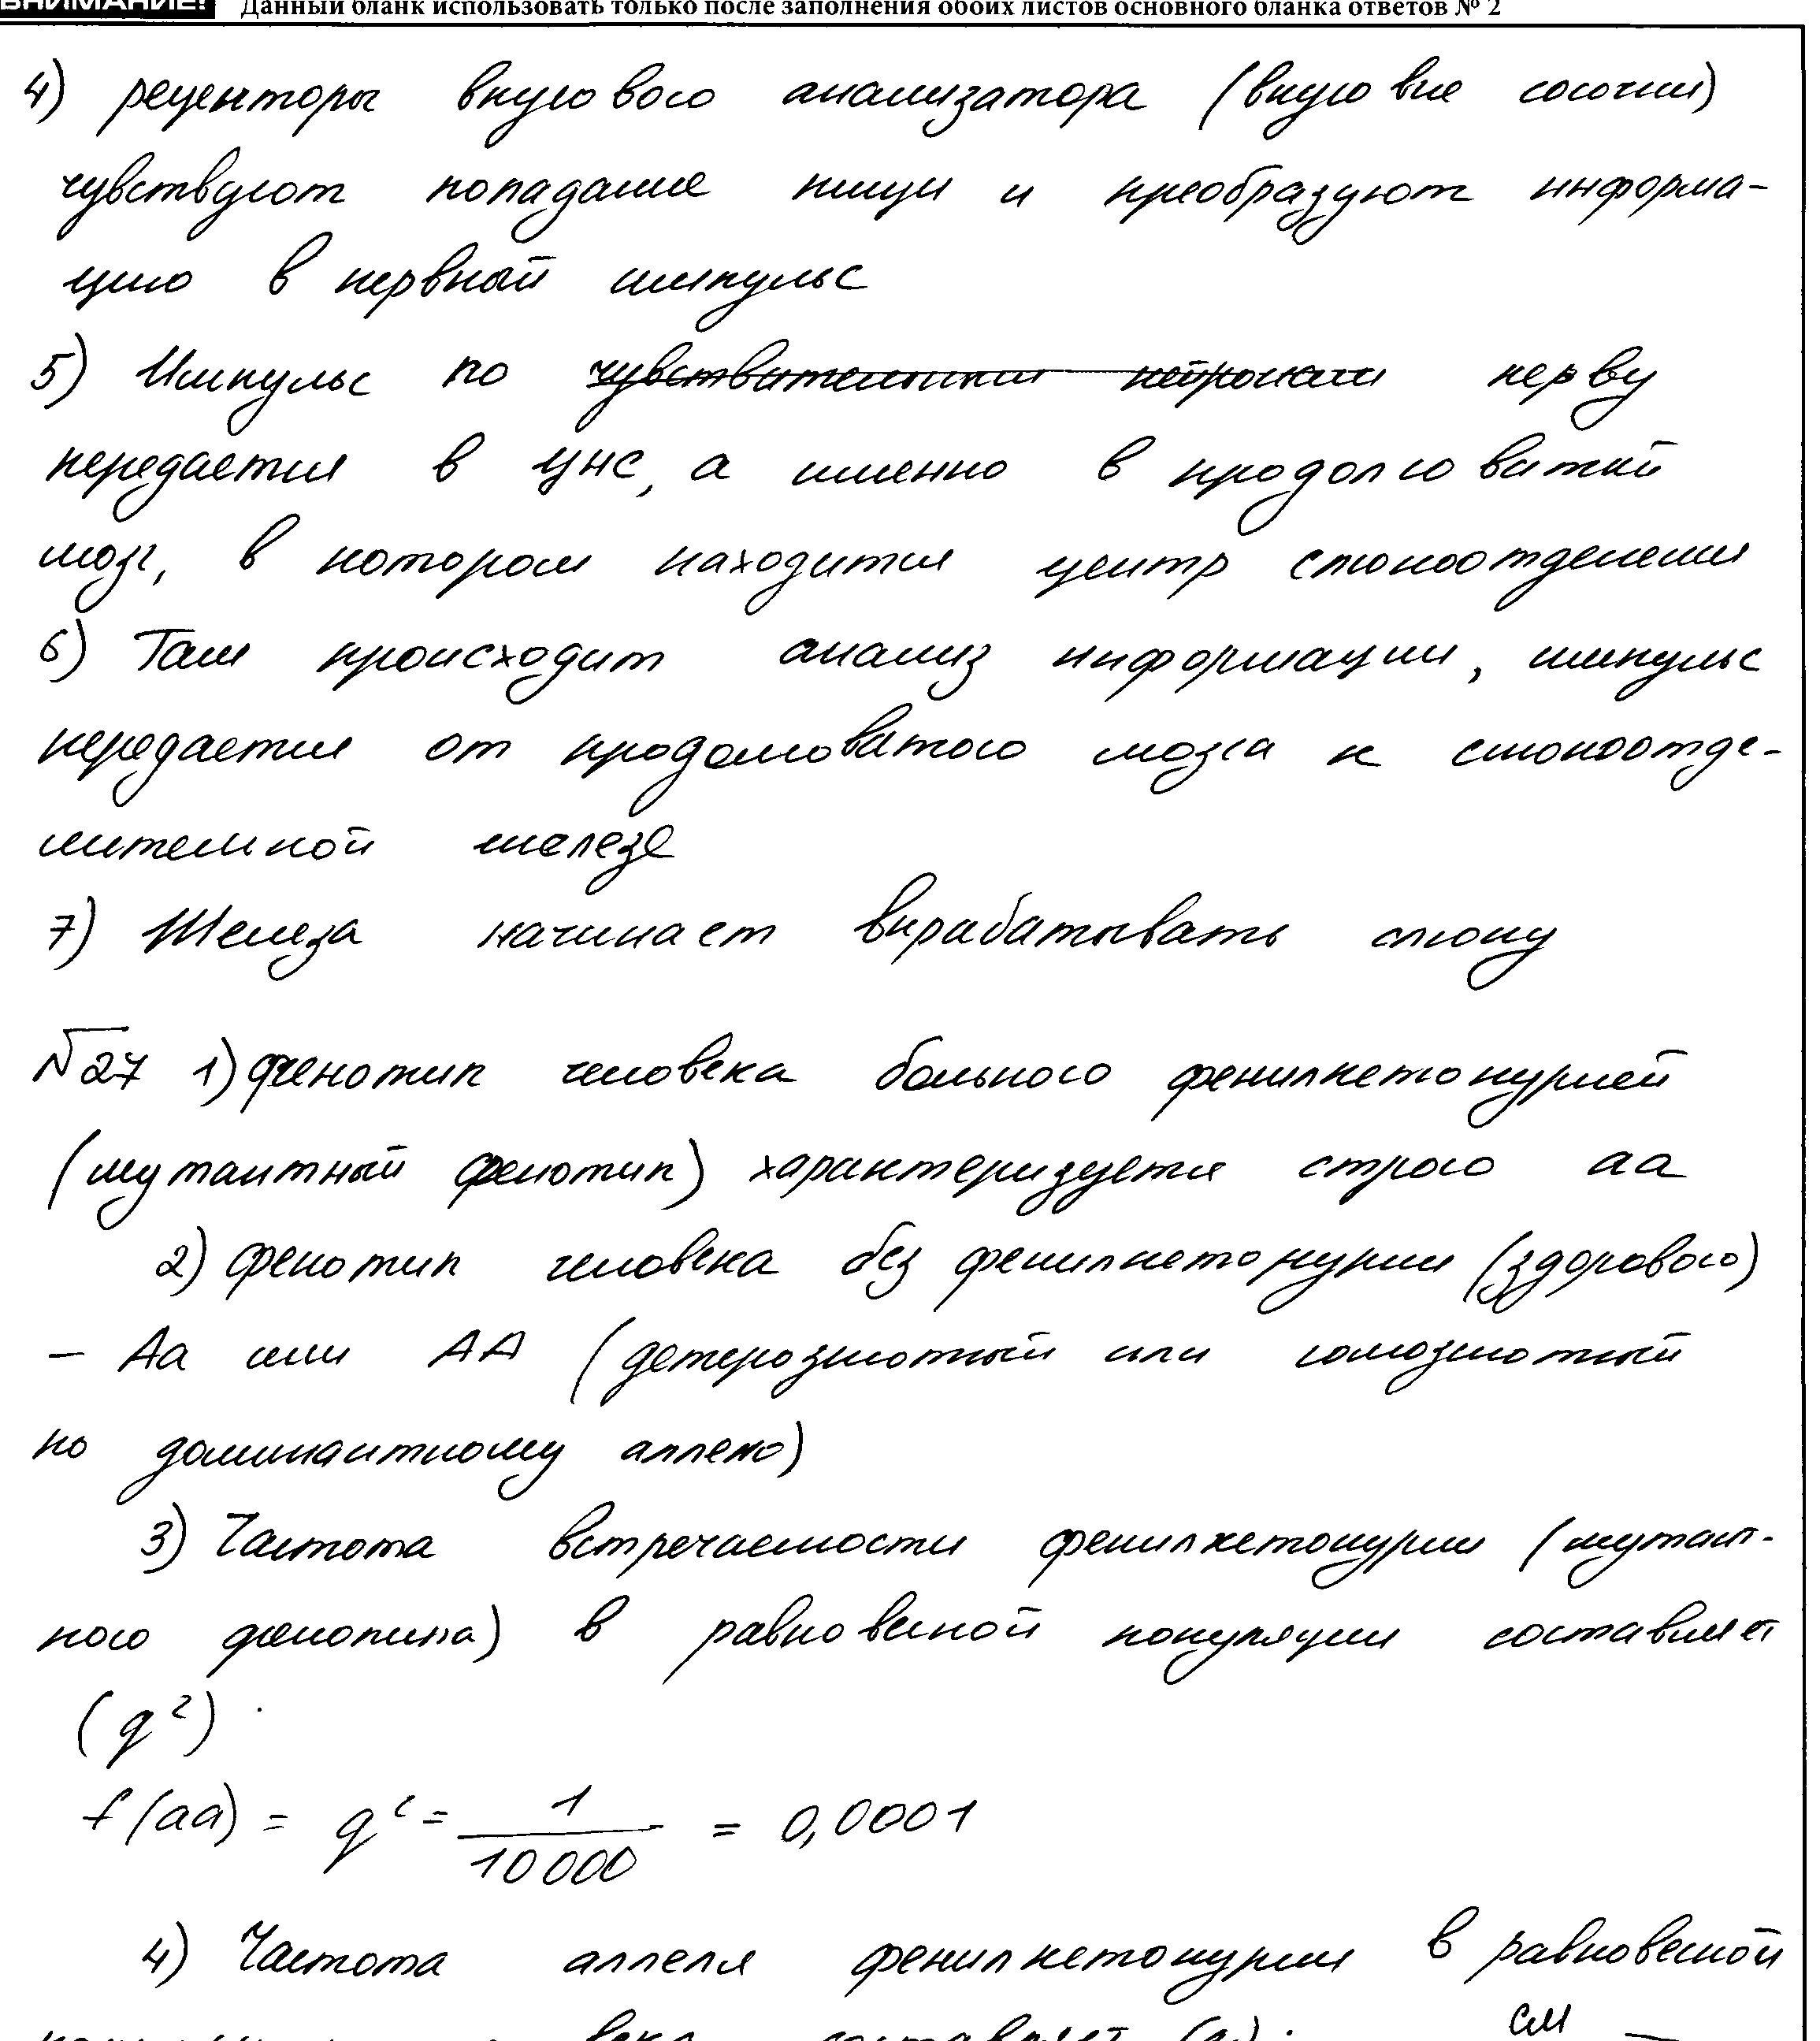 ВНИМАНИЕ! Данный бланк использовать только после заполнения обоих листов основного бланка ответов № 2
4) рецепторы вкусового анализатора (вкусовые сосочки)
чувствуют попадание пищи и преобразуют информа-
цию в нервный импульс
5) Импульс по чувствительным нейронам нерву
передается в ЦНС, а именно в продолговатый
мозг, в котором находится центр слюноотделения
6) Там происходит анализ информации, импульс
передается от продолговатого мозга к слюноотде-
лительной железе
7) Железа начинает вырабатывать слюну
№27 1) фенотип человека больного фенилкетонурией
(мутантный фенотип) характеризуется строго аа
2) фенотип человека без фенилкетонурии (здорового)
– Аа или АА (гетерозиготный или гомозиготный
по доминантному аллелю)
3) Частота встречаемости фенилкетонурии (мутант-
ного фенотипа) в равновесной популяции составляет
(q²)
f(aa) = q² = 1/10000 = 0,0001
4) Частота аллеля фенилкетонурии в равновесной
составляет (q): см